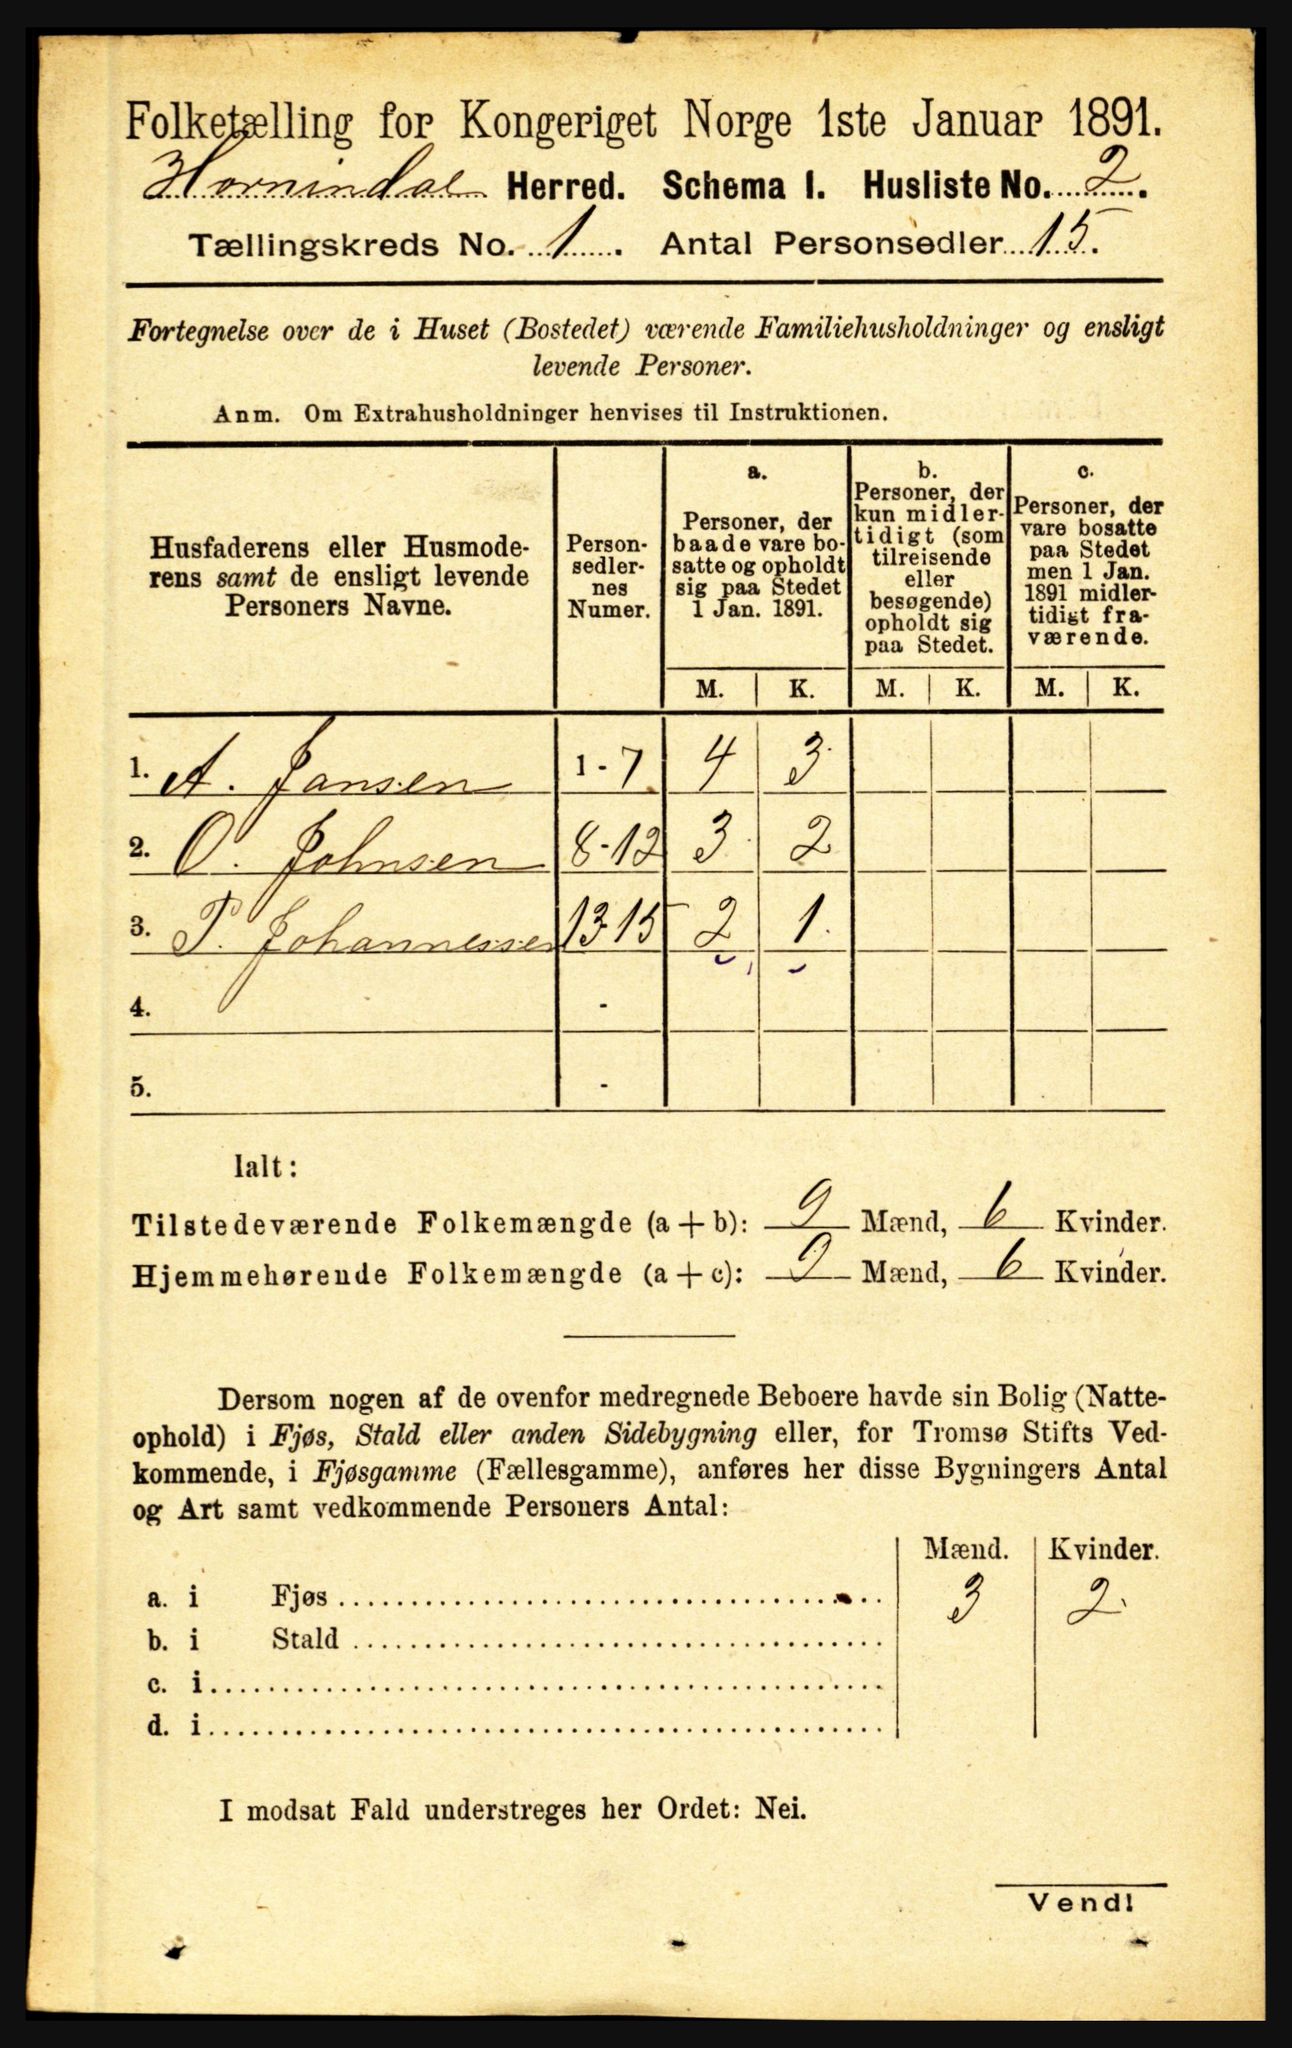 Folketælling for Kongeriget Norge 1ste Januar 1891.
Hornindal Herred. Schema I. Husliste No. 2.
Tællingskreds No. 1. Antal Personsedler 15.
Fortegnelse over de i Huset (Bostedet) værende Familiehusholdninger og ensligt
levende Personer.
Anm. Om Extrahusholdninger henvises til Instruktionen.
Husfaderens eller Husmode-
rens samt de ensligt levende
Personers Navne.
Person-
sedler-
nes
Numer.
a.
Personer, der
baade vare bo-
satte og opholdt
sig paa Stedet
1 Jan. 1891.
b.
Personer, der
kun midler-
tidigt (som
tilreisende
eller
besøgende)
opholdt sig
paa Stedet.
c.
Personer, der
vare bosatte
paa Stedet
men 1 Jan.
1891 midler-
tidigt fra-
værende.
M. K. M. K. M. K.
1. A. Jansen 1-7 4 3
2. O. Johnsen 8-12 3 2
3. P. Johannessen 13-15 2 1
4. -
5. -
Ialt:
Tilstedeværende Folkemængde (a + b): 9 Mænd, 6 Kvinder.
Hjemmehørende Folkemængde (a + c): 9 Mænd, 6 Kvinder.
Dersom nogen af de ovenfor medregnede Beboere havde sin Bolig (Natte-
ophold) i Fjøs, Stald eller anden Sidebygning eller, for Tromsø Stifts Ved-
kommende, i Fjøsgamme (Fællesgamme), anføres her disse Bygningers Antal
og Art samt vedkommende Personers Antal:
Mænd. Kvinder.
a. i Fjøs 3 2
b. i Stald
c. i
d. i
I modsat Fald understreges her Ordet: Nei.
Vend!